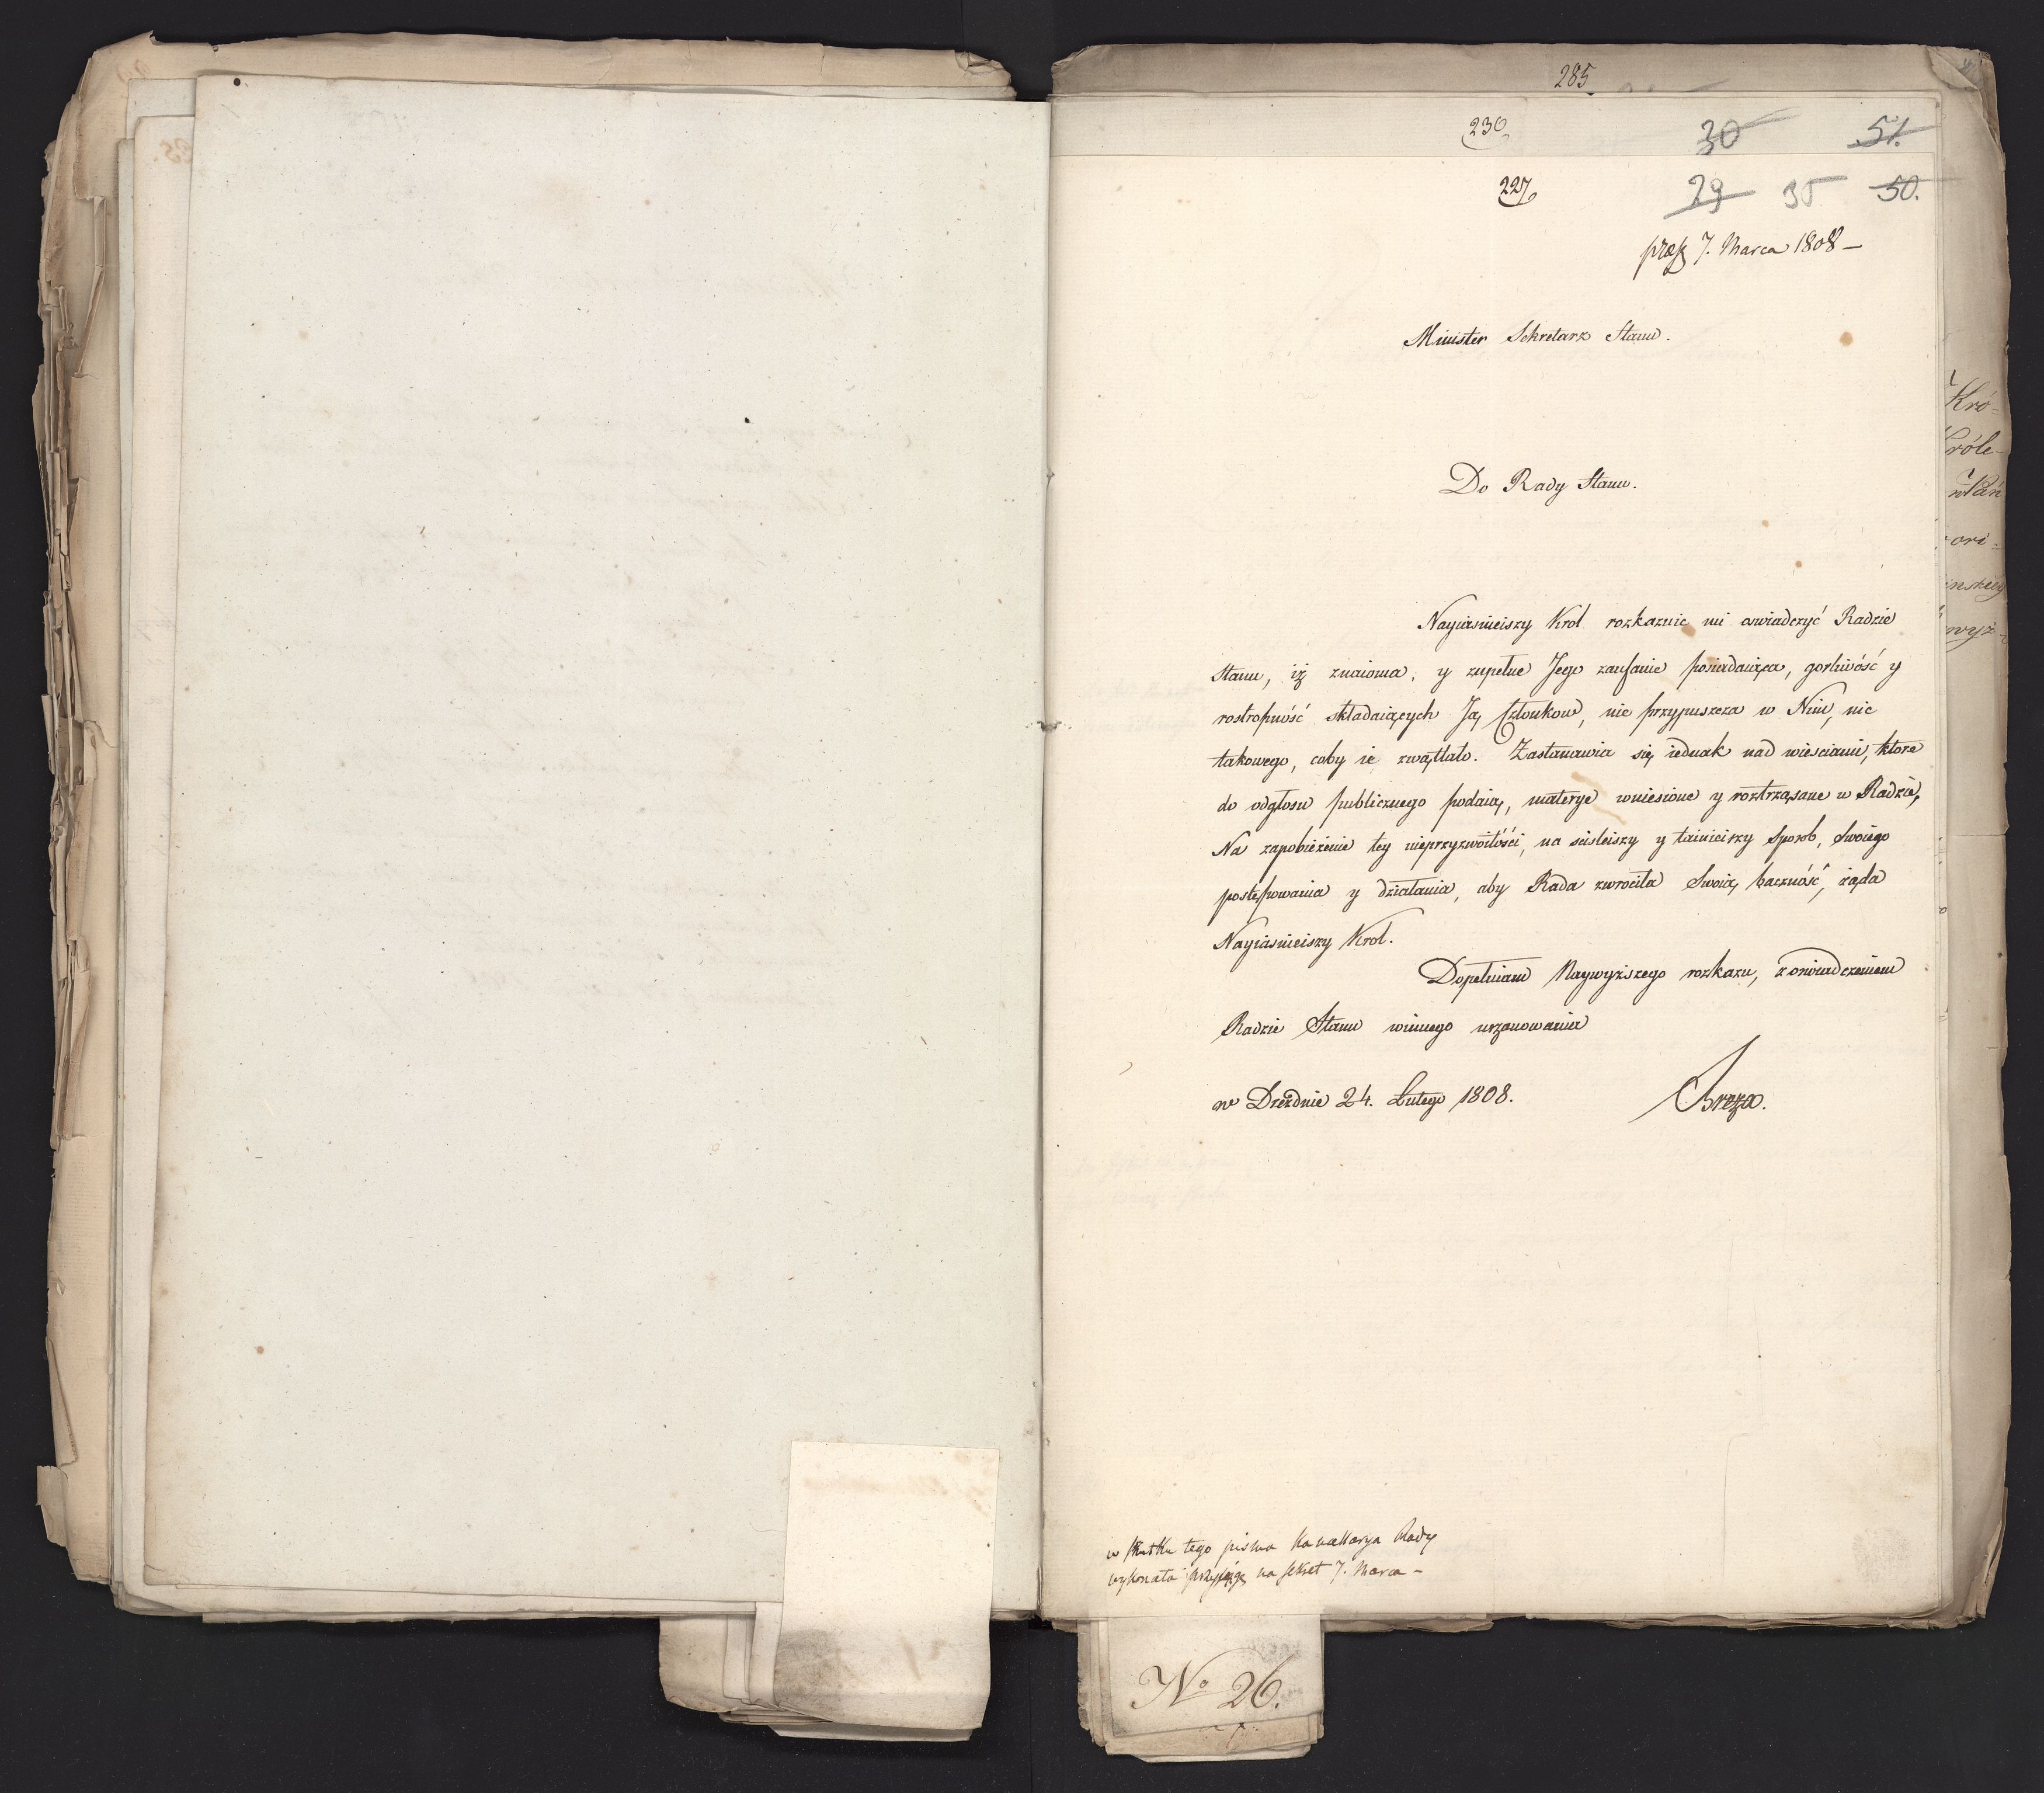 285
230
30
51.
227
29 35 50.
præs 7. Marca 1808 —
Minister Sekretarz Stanu.
Do Rady Stanu.
Nayiasnieiszy Krol rozkazuie mi oswiadczyć Radzie
Stanu, iż znaioma, y zupełne Jego zaufanie posiadaiąca, gorliwość y
rostropność składaiących Ją Członkow, nie przypuszcza w Nim, nic
takowego, coby ie zwątlało. Zastanawia się iednak nad wiesciami, ktore
do odgłosu publicznego podaią, materye wniesione y roztrząsane w Radzie,
Na zapobieżenie tey nieprzyzwoitości, na scisleiszy y tainieiszy sposob, swoiego
postępowania y działania, aby Rada zwrociła Swoią baczność, żąda
Nayiasnieiszy Krol.
Dopełniam Naywyższego rozkazu, z oswiadczeniem
Radzie Stanu winnego uszanowania
w Dreznie 24. Lutego 1808.
Breza.
w skutku tego pisma Kancellarya Rady
wykonała przysięgę na sekret 7. Marca —
No 26.
Kró-
Króle-
Pań
ori-
nskiey
wyż-